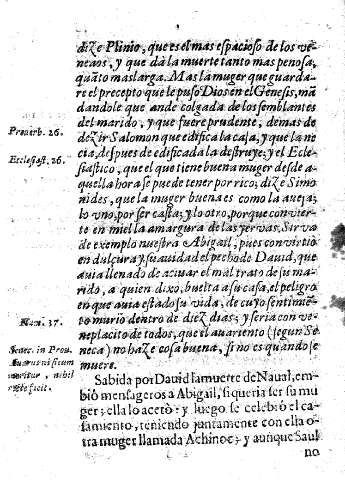 dize Plinio, que es el mas espacioso de los ve-
nenos, y que dà la muerte tanto mas penosa,
quãto mas larga. Mas la muger que guarda-
re el precepto que le puso Dios en el Genesis, mã
dandole que ande colgada de los semblantes
del marido, y que fuere prudente, demas de
Prouerb. 26.
dezir Salomon que edifica la casa, y que la ne
cia, despues de edificada la destruye; y el Ecle-
Ecclesiast. 26.
siastico, que el que tiene buena muger desde a-
quella hora se puede tener por rico; dize Simo
nides, que la muger buena es como la aueja;
lo vno, por ser casta; y lo otro, porque conuier-
te en miel la amargura de las yeruas. Sirva
de exemplo nuestra Abigail, pues conuirtio
en dulçura y suauidad el pecho de Dauid, que
auia llenado de azivar el mal trato de su ma-
rido, a quien dixo, buelta a su casa, el peligro
en que auia estado su vida, de cuyo sentimiẽ-
Num. 37.
to murio dentro de diez dias; y seria con ve-
neplacito de todos, que el auariento (segun Se
Senec. in Prou.
neca) no haze cosa buena, si no es quando se
Auarus nisi cum
muere.
moritur, nihil
recte facit.
Sabida por Dauid la muerte de Naual, em-
bió mensageros a Abigail, si queria ser su mu
ger; ella lo acetò: y luego se celebró el ca-
samiento, teniendo juntamente con ella o-
tra muger llamada Achinoe; y aunque Saul
no